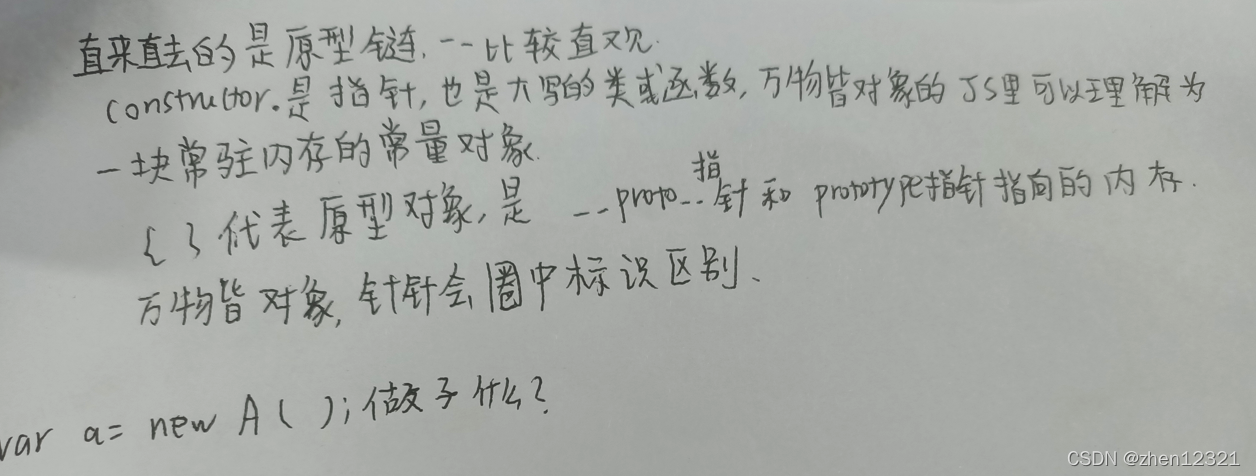 直来直去的是原型链,一一比较直观.
constructor.是指针,也是大写的类或函数,万物皆对象的JS里可以理解为
一块常驻内存的常量对象.
{ }代表原型对象,是 __proto__指针和 prototype指针指向的内存.
万物皆对象,针针会圈中标识区别、
var a= new A ( ); 做了什么?
CSDN @zhen12321